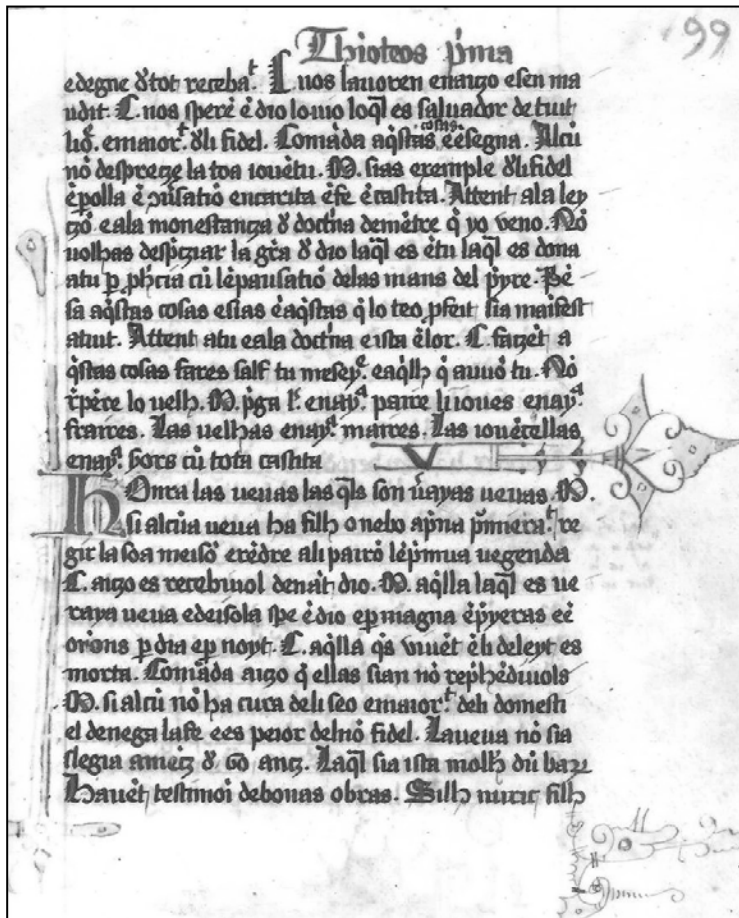 Thioteos p̄ma
99
edegne d̄tot receba.ᵗ C. nos lauoren enaizo esen ma
udit. C. nos sperē ē dio louio loq̄l es saluador de tuit
hō. emaior.ᵗ d̄li fidel. Comāda aq̄stas cosas eēsegna. Alcū
nō despreze la toa iouētu. M. sias exemple d̄li fidel
ē polla ē ɔūsatiō encarita ēfe ēcastita. Attent ala ley
zō eala monestanza d̄ doctna demētre q̄ yo veno. Nō
uolhas desp̄ziar la gr̄a d̄ dio laq̄l es ētu laq̄l es dona
atu p̱ ph̄cia cū lēpausatiō delas mans del p̄yre. Pē
sa aq̄stas cosas esias ēaq̄stas q̄ lo teo ꝓfeit sia maifest
atuit. Attent atu eala doctna eista ēlor. C. fazēt a
q̄stas cosas fares salf tu mesey.ᵉ eaq̄lh q̄ auuō tu. Nō
rp̄ere lo uelh. M. p̄ga l' enay.ᵃ paire li ioues enay.ᵃ
fraires. Las uelhas enay.ᵃ maires. Las iouēcellas
enay.ᵃ sors cū tota castita
V
HOnra las ueuas las q̄ls son ūayas ueuas. M.
si alcūa ueua ha filh o nebo ap̄na p̄mera.ᵗ re
gir la soa meisō erēdre ali pairō lēp̄mua uegenda
C. aizo es recebiuol denāt dio. M. aq̄lla laq̄l es ue
raya ueua edeisola spe ēdio ep̱ magna ēp̄yeras eē
orōns p̱ dia ep̱ noyt. C. aq̄lla q̄s viuēt ēli deleyt es
morta. Comāda aizo q̄ ellas sian nō rep̄hēdiuols
M. si alcū nō ha cura deli seo emaior.ᵗ deli domesti
el denega lafe ees peior delnō fidel. La ueua nō sia
slegia ameīz d̄ 60 anz. Laq̄l sia ista molh̄ dū bar
Hauēt testimoi debonas obras. Silh nuric filh